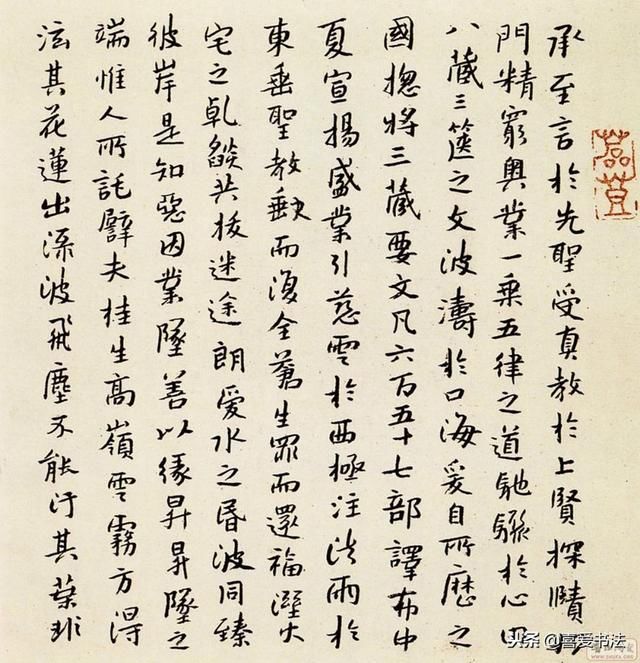 承至言於先聖受真教於上賢探賾妙
門精窮奧業一乘五律之道馳驟於心田
八藏三篋之文波濤於口海爰自所歷之
國揔將三藏要文凡六百五十七部譯布中
夏宣揚盛業引慈雲於西極注法雨於
東垂聖教缺而復全蒼生罪而還福溼火
宅之乾燄共拔迷途朗愛水之昏波同臻
彼岸是知惡因業墜善以緣昇昇墜之
端惟人所託譬夫桂生高嶺雲霧方得
泫其花蓮出淥波飛塵不能汙其葉非
头条 @喜爱书法